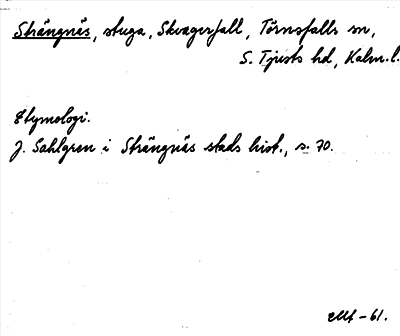 Strängnäs, stuga, Skvagerfall, Törnsfalls sn,
S. Tjusts hd, Kalm. l.
Etymologi.
J. Sahlgren i Strängnäs stads hist., s. 70.
-61.